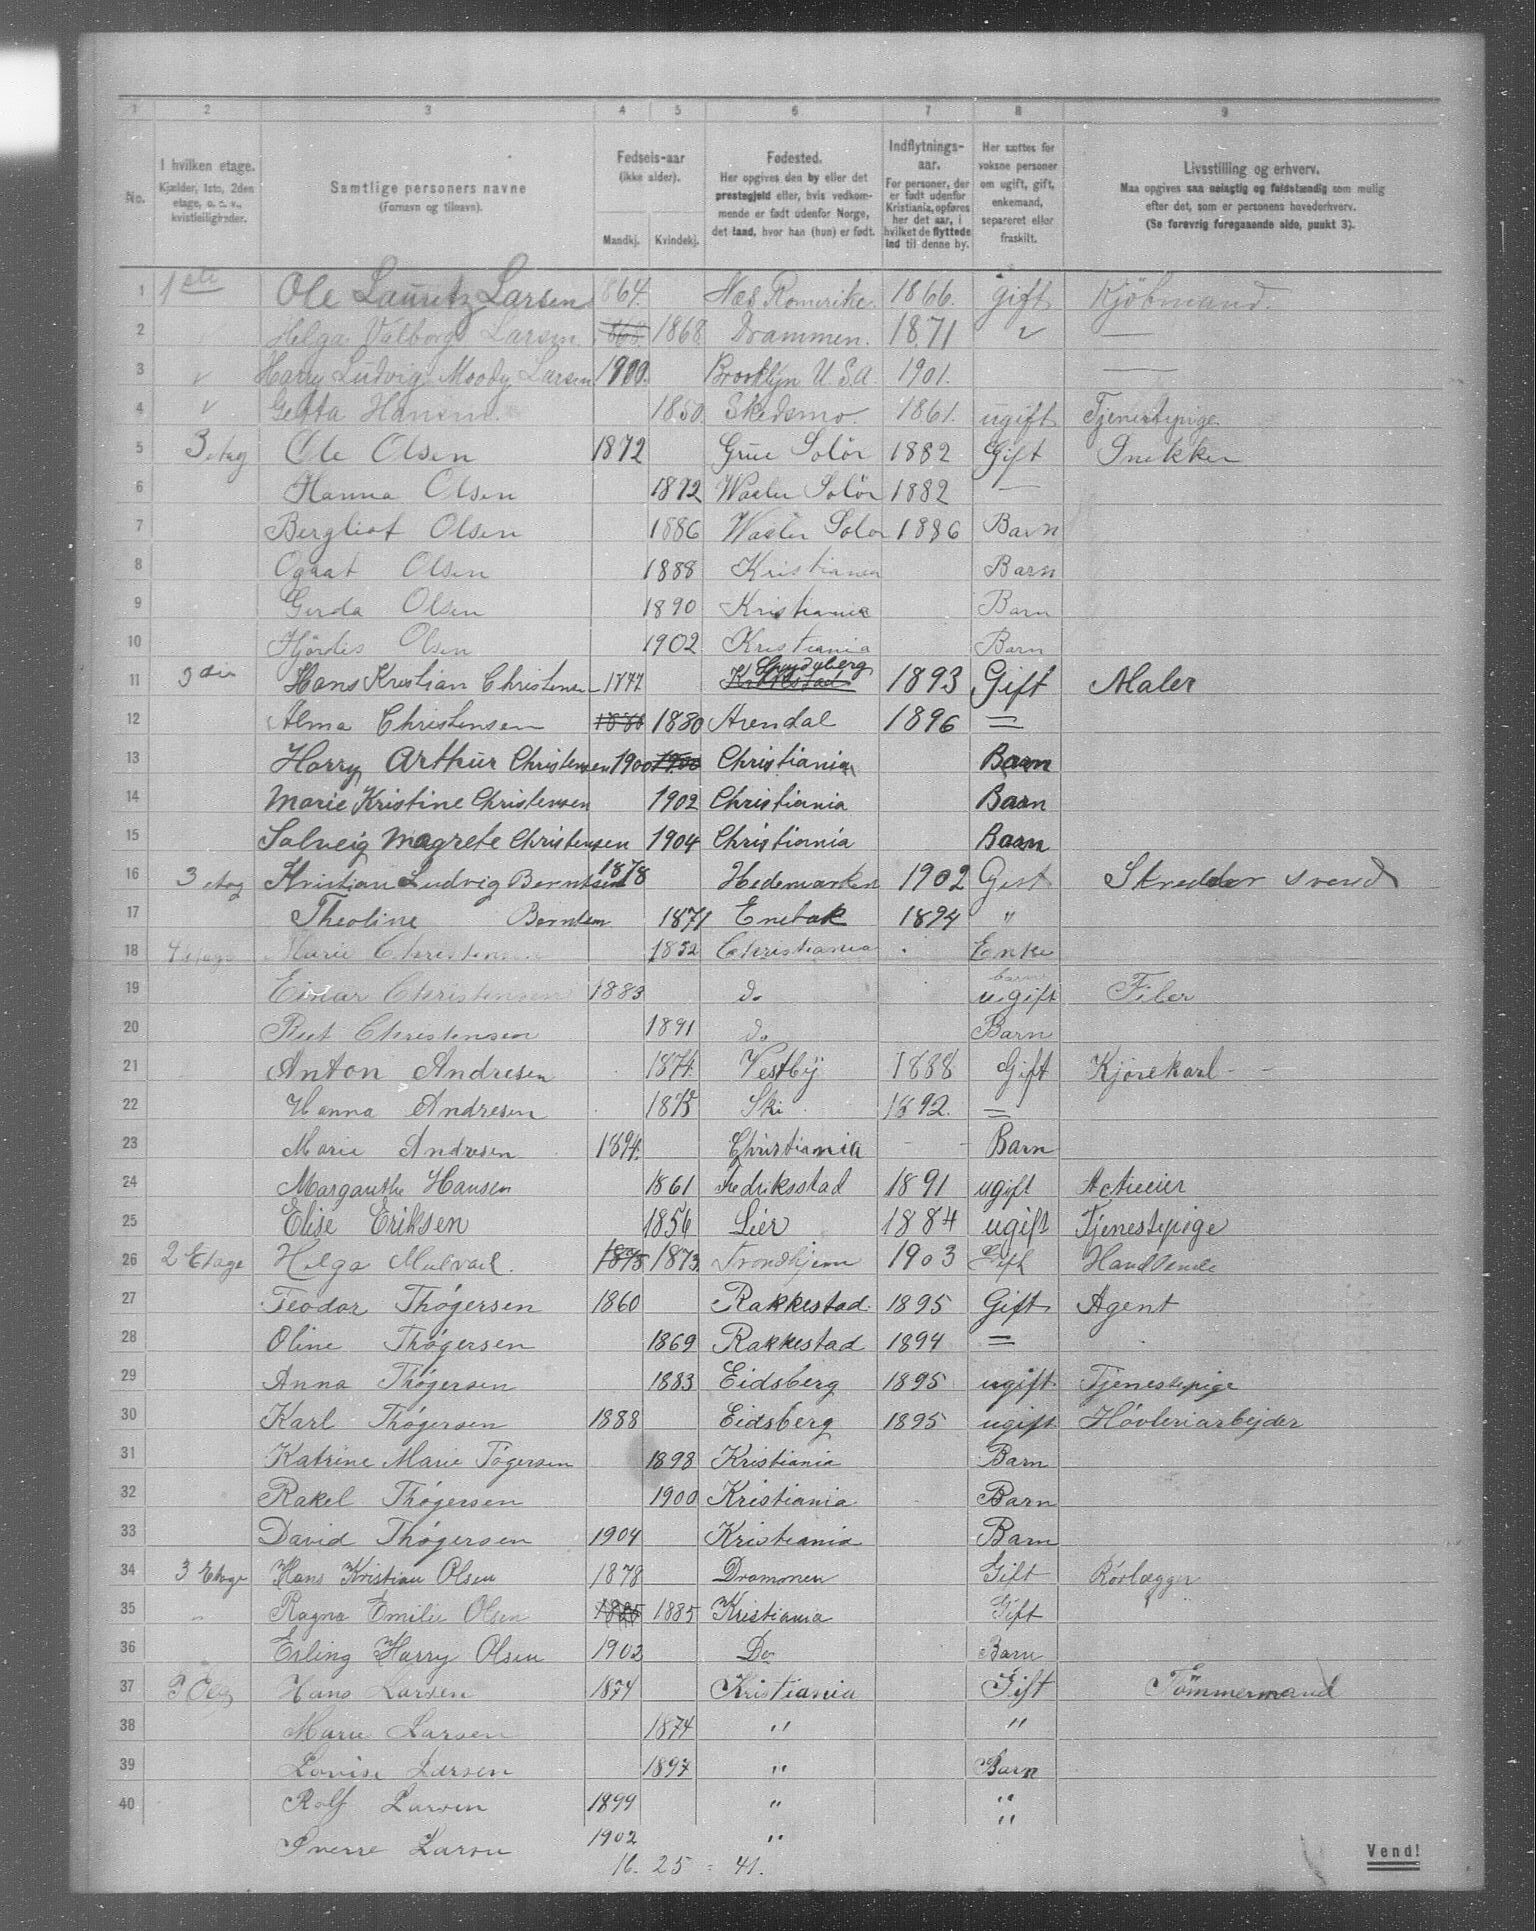 1 2 3 4 5 6 7 8 9
No.
I hvilken etage. Kjælder, 1ste, 2den etage, o. s. v., kvistleiligheder.
Samtlige personers navne (Fornavn og tilnavn).
Fødsels-aar (ikke alder). Mandkj. Kvindekj.
Fødested. Her opgives den by eller det prestegjeld eller, hvis vedkommende er født udenfor Norge, det land, hvor han (hun) er født.
Indflytnings-aar. For personer, der er født udenfor Kristiania, opføres her det aar, i hvilket de flyttede ind til denne by.
Her sættes for voksne personer om ugift, gift, enkemand, separeret eller fraskilt.
Livsstilling og erhverv. Maa opgives saa nøiagtig og fuldstændig som mulig efter det, som er personens hovederhverv. (Se forøvrig foregaaende side, punkt 3).
1 1ste Ole Lauritz Larsen 1864. Næs Romerike. 1866. gift Kjöbmand.
2 Helga Valborg Larsen 1868 Drammen. 1871 " —
3 " Harry Ludvig Moody Larsen 1900. Brooklyn U.S.A. 1901. —
4 " Getta Hansen. 1850. Skedsmo. 1861. ugift Tjenestepige.
5 3 etag Ole Olsen 1872 Grue Solör 1882 Gift Snekker
6 Hanna Olsen 1872 Waaler Solör 1882 —
7 Bergliot Olsen 1886 Waaler Solor 1886 Barn
8 Olsen 1888 Kristiania Barn
9 Gerda Olsen 1890 Kristiania Barn
10 Hjördis Olsen 1902 Kristiania Barn
11 Hans Kristian Christensen 1877 Spydeberg 1893 Gift Maler
12 Alma Christensen 1880 1880 Arendal 1896 =
13 Harry Arthur Christensen 1900 1900 Christiania Barn
14 Marie Kristine Christensen 1902 Christiania Barn
15 Solveig Magrete Christensen 1904 Christiania Barn
16 3 etag Kristian Ludvig Berntsen 1878 Hedemarken 1902 Gift Skredder svend
17 Theoline Berntsen 1871 Enebak 1894 "
18 4 etage Marie Christensen 1852 Christiania . Enke
19 Einar Christensen 1883 do ugift Filer
20 Rut Christensen 1891 do Barn
21 Anton Andresen 1874. Vestby 1888 Gift Kjørekarl
22 Hanna Andresen 1875 Ski 1892. =
23 Marie Andresen 1894. Christiania Barn
24 Margarethe Hansen 1861 Fredriksstad 1891 ugift
25 Elise Eriksen 1856 Lier 1884 ugift Tjenestepige
26 2 Etage Helga 1873 1873. Trondhjem 1903 Gift Handlende
27 Teodor Thøgersen 1860 Rakkestad. 1895 Gift Agent
28 Oline Thøgersen 1869 Rakkestad 1894 =
29 Anna Thøgersen 1883 Eidsberg 1895 ugift Tjenestepige
30 Karl Thøgersen 1888 Eidsberg 1895 ugift Høvleriarbejder
31 Katrine Marie Tögersen 1898 Kristiania Barn
32 Rakel Thøgersen 1900 Kristiania Barn
33 David Thøgersen 1904 Kristiania Barn
34 3 Etage Hans Kristian Olsen 1878 Drammen Gift Rörlægger
35 " Ragna Emilie Olsen 1885 1885 Kristiania Gift
36 Erling Harry Olsen 1902 Do Barn
37 3 Etg Hans Larsen 1874 Kristiania Gift Tömmermand
38 Marie Larsen 1874 " "
39 Lovise Larsen 1897 " Barn
40 Rolf Larsen 1899 " "
Sverre Larsen 1902 " "
16. 25 = 41.
Vend!